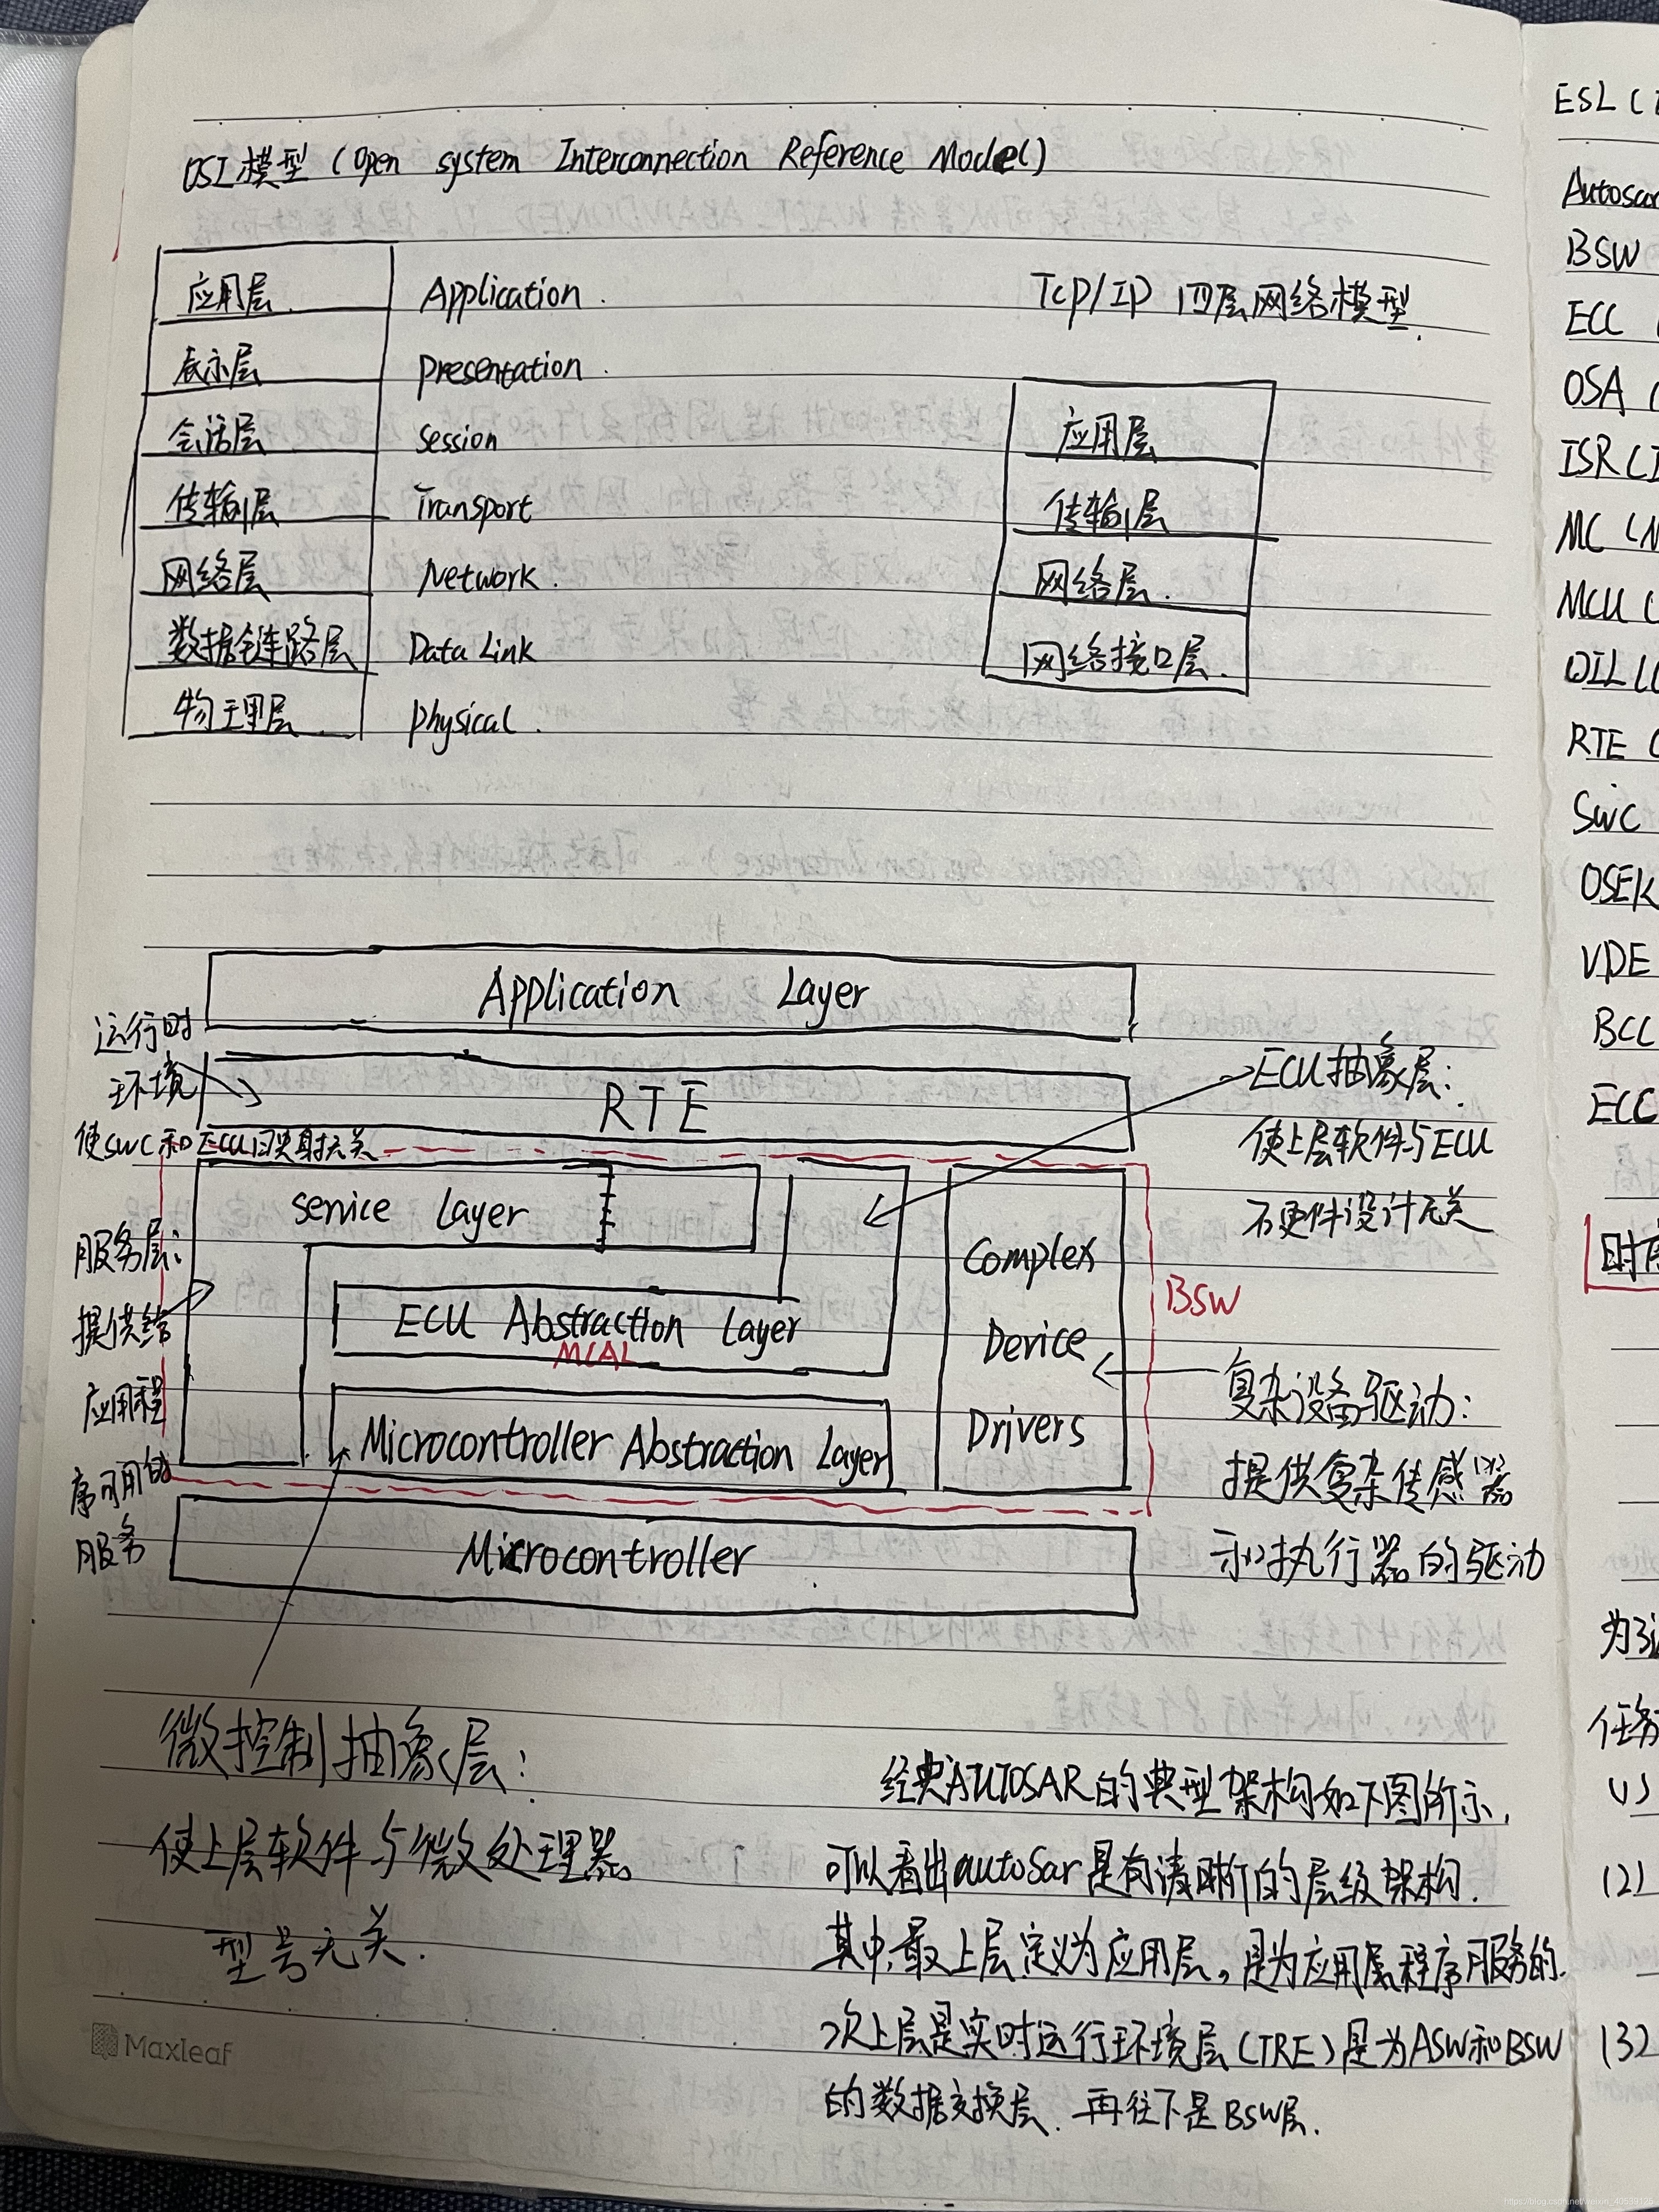 OSI模型 (Open system Interconnection Reference Model)
应用层 Application.
表示层 Presentation.
会话层 Session
传输层 Transport
网络层 Network.
数据链路层 Data Link
物理层 Physical.
Tcp/IP 四层网络模型.
应用层
传输层
网络层.
网络接口层.
Application Layer
运行时
环境
RTE
使SWC和ECU的映射无关
Service Layer
ECU Abstraction Layer
MCAL
Microcontroller Abstraction Layer
Complex
Device
Drivers
BSW
Microcontroller
服务层:
提供给
应用程
序可用的
服务
ECU抽象层:
使上层软件与ECU
硬件设计无关
复杂设备驱动:
提供复杂传感器
和执行器的驱动
微控制抽象层:
使上层软件与微处理器
型号无关.
经典AUTOSAR的典型架构如下图所示,
可以看出autoSar是有清晰的层级架构.
其中,最上层定义为应用层,是为应用层程序服务的.
次上层是实时运行环境层(TRE)是为ASW和BSW
的数据交换层. 再往下是BSW层.
Maxleaf
ESL (
Autosar
BSW
ECC (
OSA (
ISR (I
MC (M
MCU (
OIL (
RTE (
SWC
OSEK
VDE
BCC
ECC
时序
为了
任务
(1)
(2)
(3)